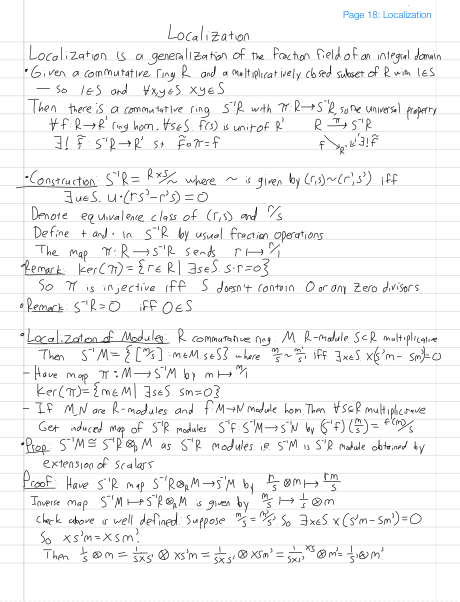 Page 18: Localization
Localization
Localization is a generalization of the fraction field of an integral domain
• Given a commutative ring R and a multiplicatively closed subset of R with 1∈S
— So 1∈S and ∀x,y∈S xy∈S
Then there is a commutative ring S⁻¹R with π: R→S⁻¹R, so the universal property
∀ f: R→R' ring hom, ∀s∈S f(s) is unit of R' R →π S⁻¹R
∃! f̃: S⁻¹R→R' s.t. f̃∘π=f f ↘ R' ↙∃!f̃
• Construction: S⁻¹R = R×S/~ where ~ is given by (r,s)~(r',s') iff
∃u∈S. u·(rs'-r's)=0
Denote equivalence class of (r,s) and r/s
Define + and · in S⁻¹R by usual fraction operations
The map π: R→S⁻¹R sends r↦r/1
• Remark: Ker(π) = {r∈R | ∃s∈S. s·r=0}
So π is injective iff S doesn't contain 0 or any zero divisors
• Remark: S⁻¹R=0 iff 0∈S
• Localization of Modules: R commutative ring. M R-module S⊂R multiplicative
Then S⁻¹M = {[m/s] : m∈M, s∈S} where m/s ~ m'/s' iff ∃x∈S x(s'm - sm')=0
- Have map π: M→S⁻¹M by m↦m/1
Ker(π) = {m∈M | ∃s∈S. sm=0}
- If M,N are R-modules and f: M→N module hom Then ∀S⊂R multiplicative
Get induced map of S⁻¹R modules S⁻¹f: S⁻¹M→S⁻¹N by (S⁻¹f)(m/s) = f(m)/s
• Prop: S⁻¹M ≅ S⁻¹R⊗_R M as S⁻¹R modules i.e. S⁻¹M is S⁻¹R module obtained by
extension of scalars
Proof: Have S⁻¹R map S⁻¹R⊗_R M→S⁻¹M by r/s ⊗ m ↦ rm/s
Inverse map S⁻¹M ↦ S⁻¹R⊗_R M is given by m/s ↦ 1/s ⊗ m
check above is well defined. Suppose m/s = m'/s' So ∃x∈S x(s'm-sm')=0
So xs'm = xsm'.
Then 1/s ⊗ m = 1/sxs' ⊗ xs'm = 1/sxs' ⊗ xsm' = 1/sxs' xs ⊗ m' = 1/s' ⊗ m'